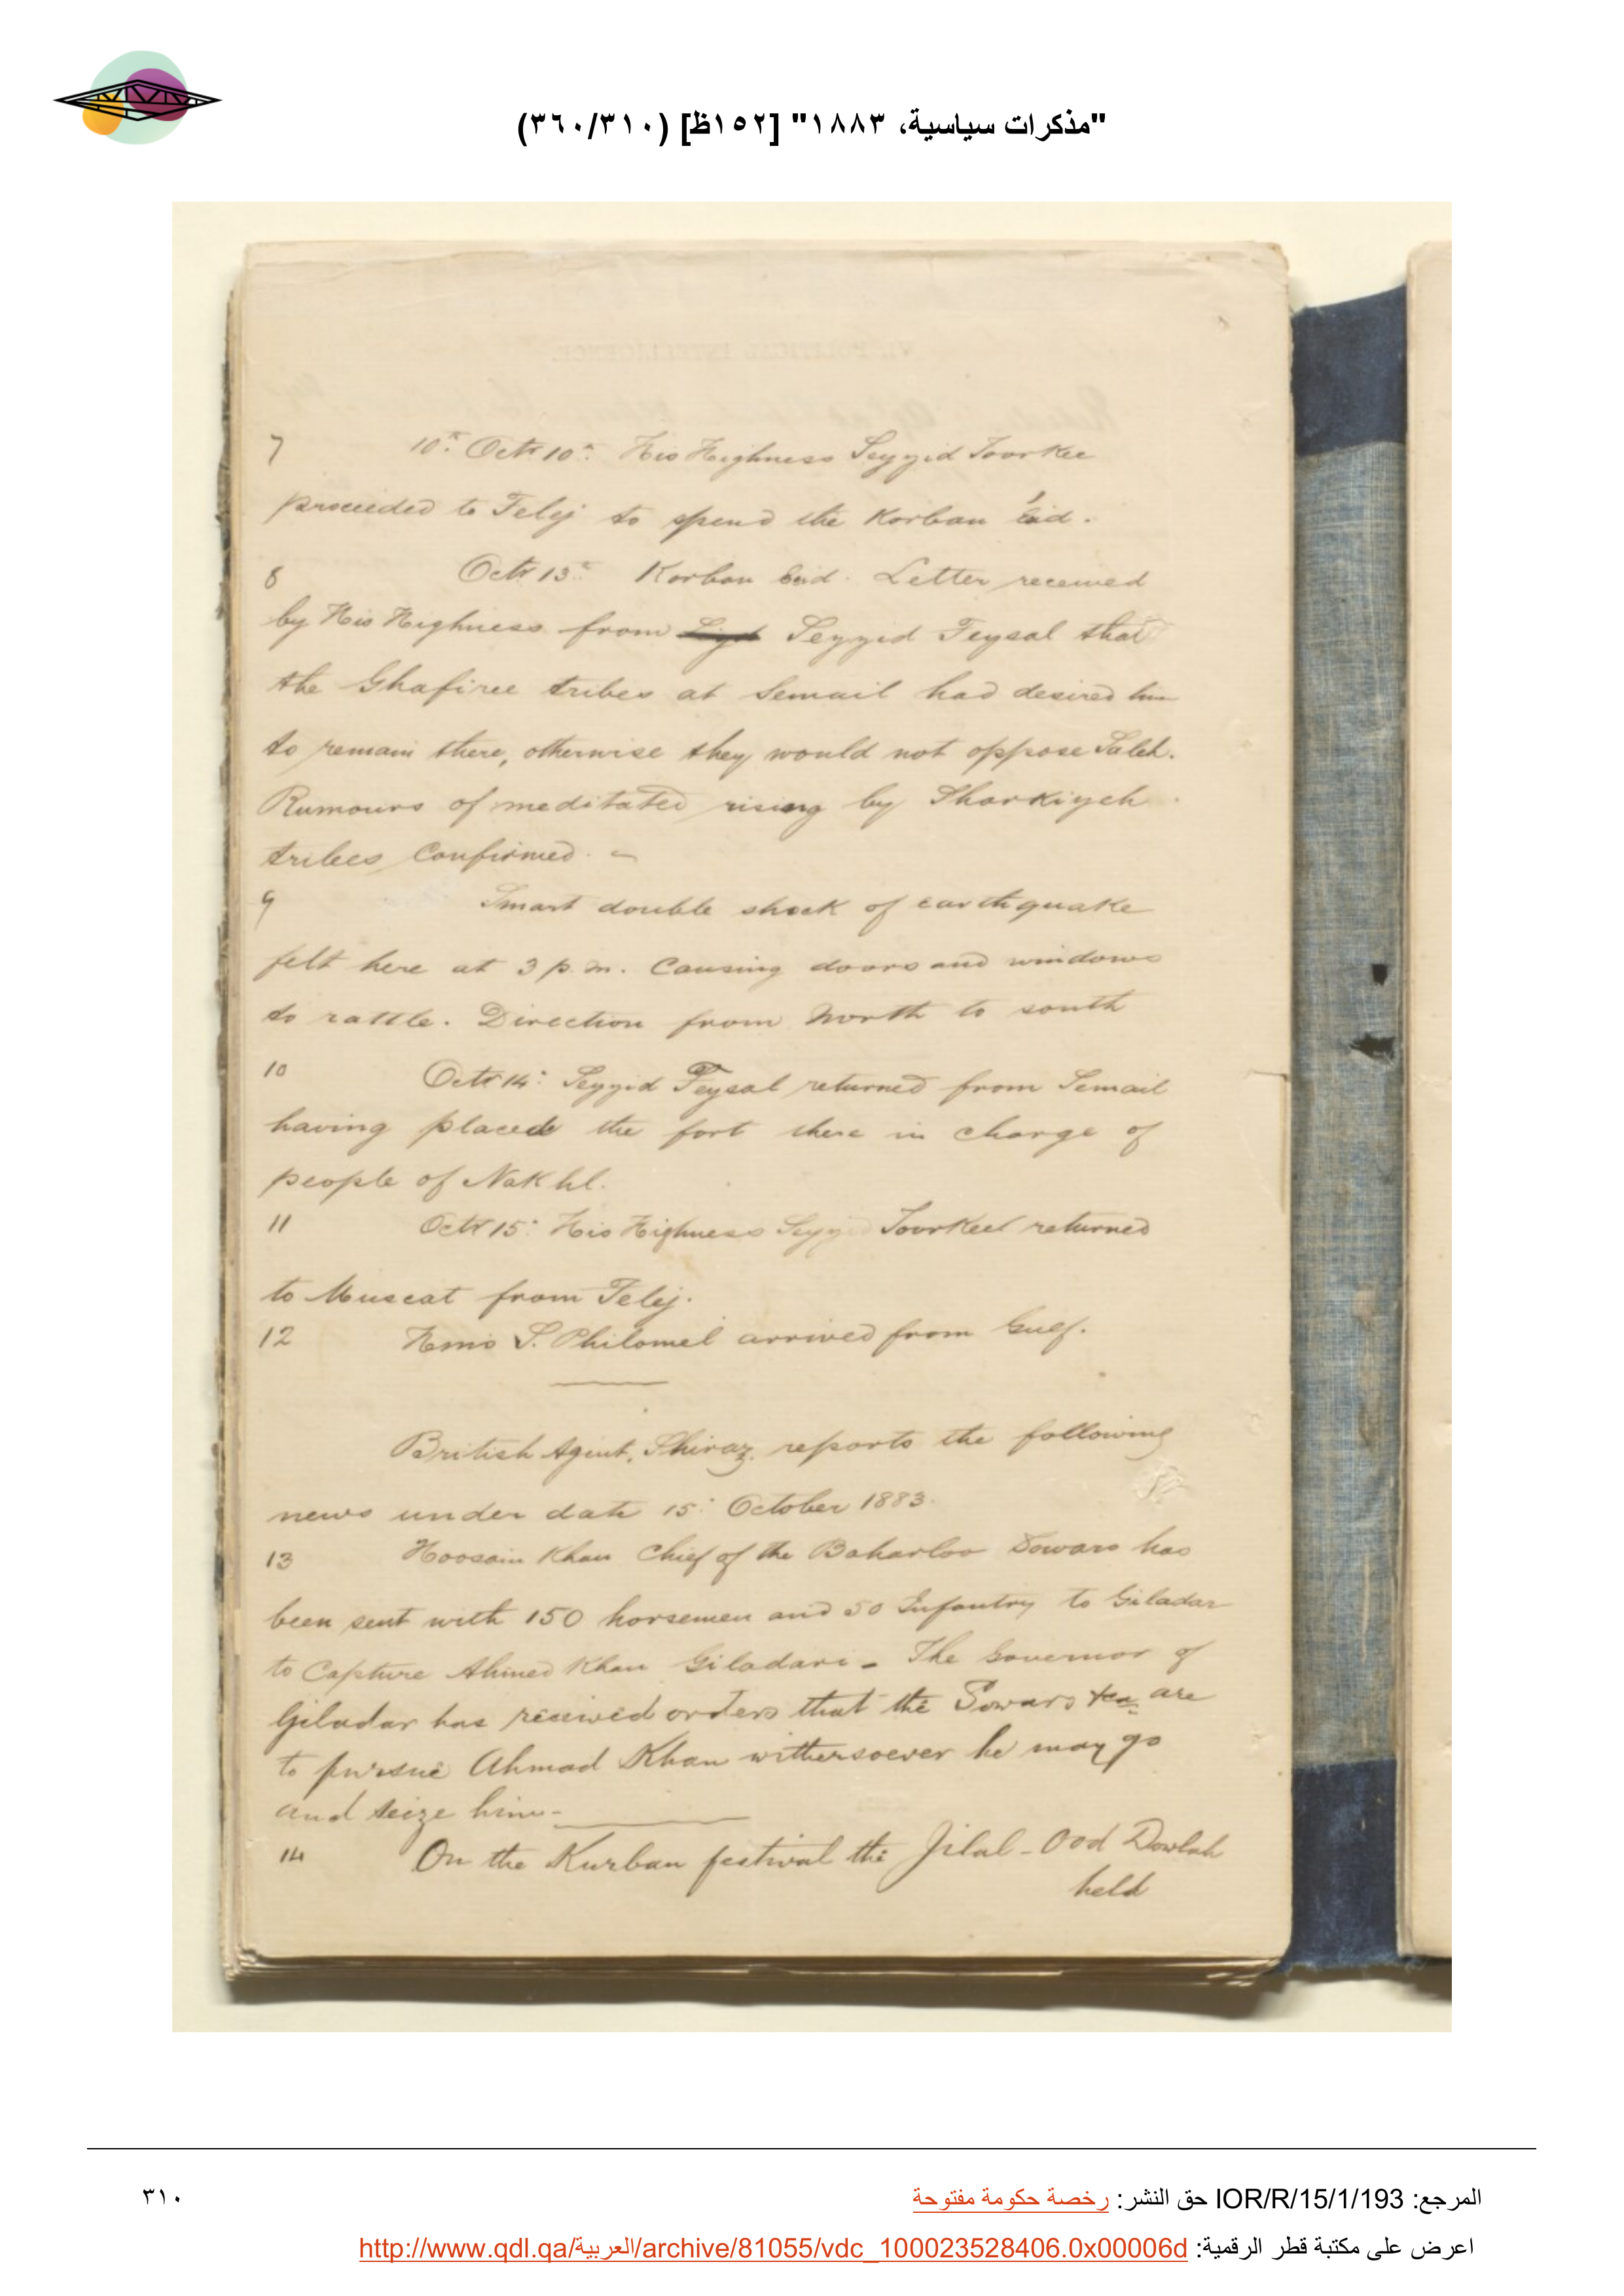 "مذكرات سياسية، ١٨٨٣" [١٥٢ظ] (٣٦٠/٣١٠)
7 10th Octr 10th His Highness Seyyid Toorkee
proceeded to Felej to spend the Korban Eid.
8 Octr 13th Korban Eid. Letter received
by His Highness from Seyyid Feysal that
the Ghafiree tribes at Semail had desired him
to remain there, otherwise they would not oppose Saleh.
Rumours of meditated rising by Sharkiyeh
tribes Confirmed. -
9 Smart double shock of earthquake
felt here at 3 p.m. Causing doors and windows
to rattle. Direction from North to south
10 Octr 14: Seyyid Feysal returned from Semail
having placed the fort there in charge of
people of Nakhl.
11 Octr 15: His Highness Seyyid Toorkee returned
to Muscat from Felej.
12 Hms S. Philomel arrived from Gulf.
British Agent, Shiraz, reports the following
news under date 15: October 1883.
13 Hoosain Khan Chief of the Baharloo Sowars has
been sent with 150 horsemen and 50 Infantry to Giladar
to Capture Ahmed Khan Giladari - The Governor of
Giladar has received orders that the Sowars &ca are
to pursue Ahmad Khan withersoever he may go
and seize him -
14 On the Kurban festival the Jilal-ood Dowlah
held
المرجع: IOR/R/15/1/193 حق النشر: رخصة حكومة مفتوحة
٣١٠
اعرض على مكتبة قطر الرقمية: http://www.qdl.qa/العربية/archive/81055/vdc_100023528406.0x00006d